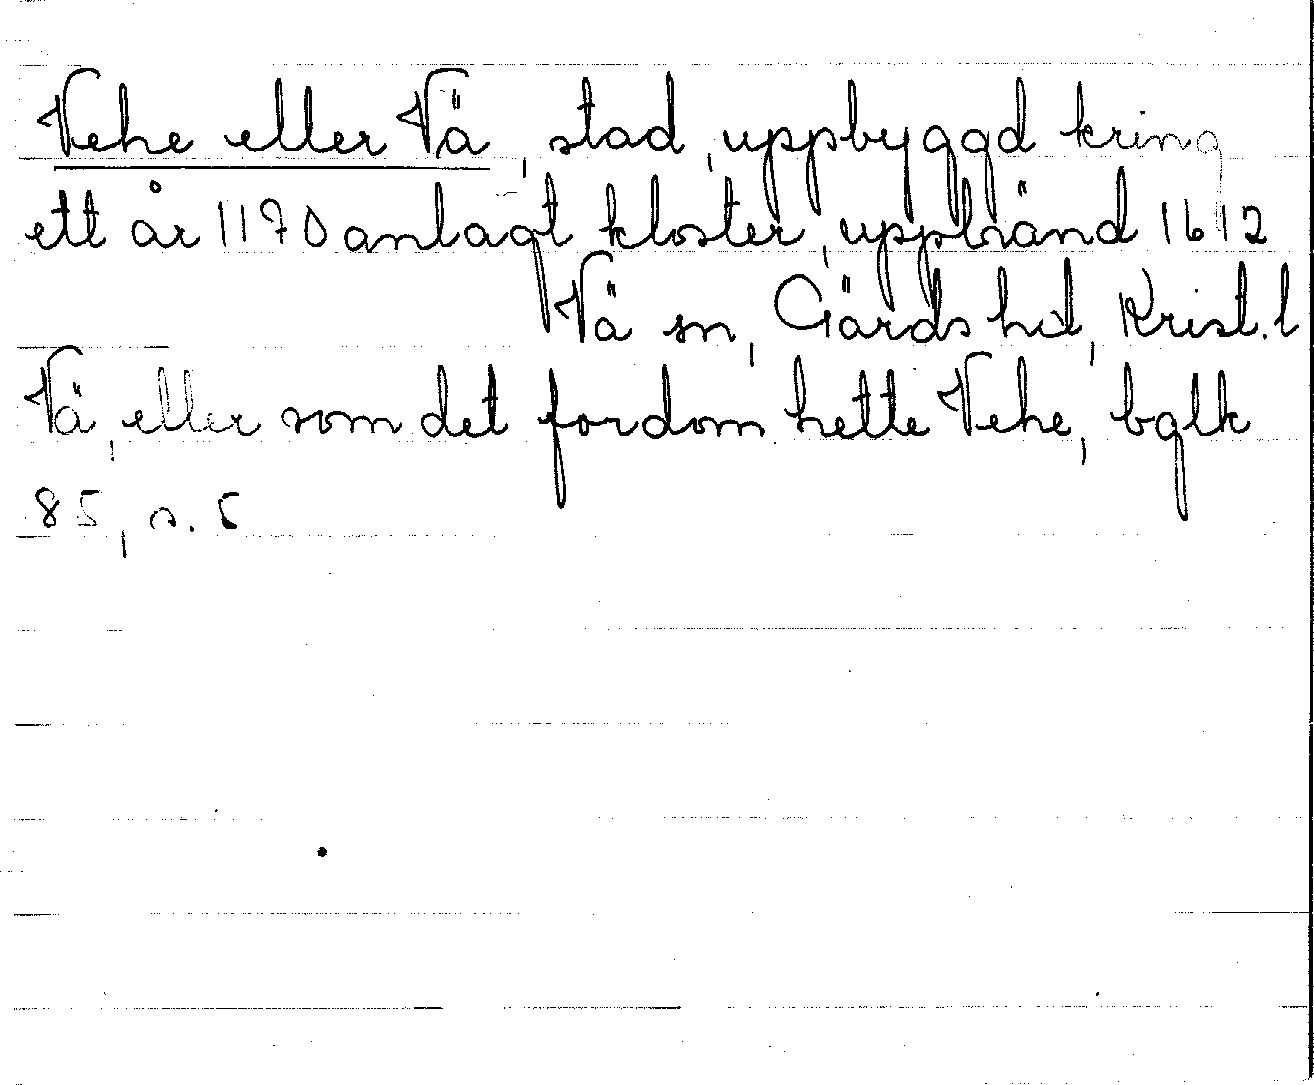 Vehe eller Vä, stad, uppbyggd kring
ett år 1170 anlagt kloster, uppbränd 1612
Vä sn, Gärds hd, Krist. l
Vä, eller som det fordom hette Vehe, bglk
85, s. 5